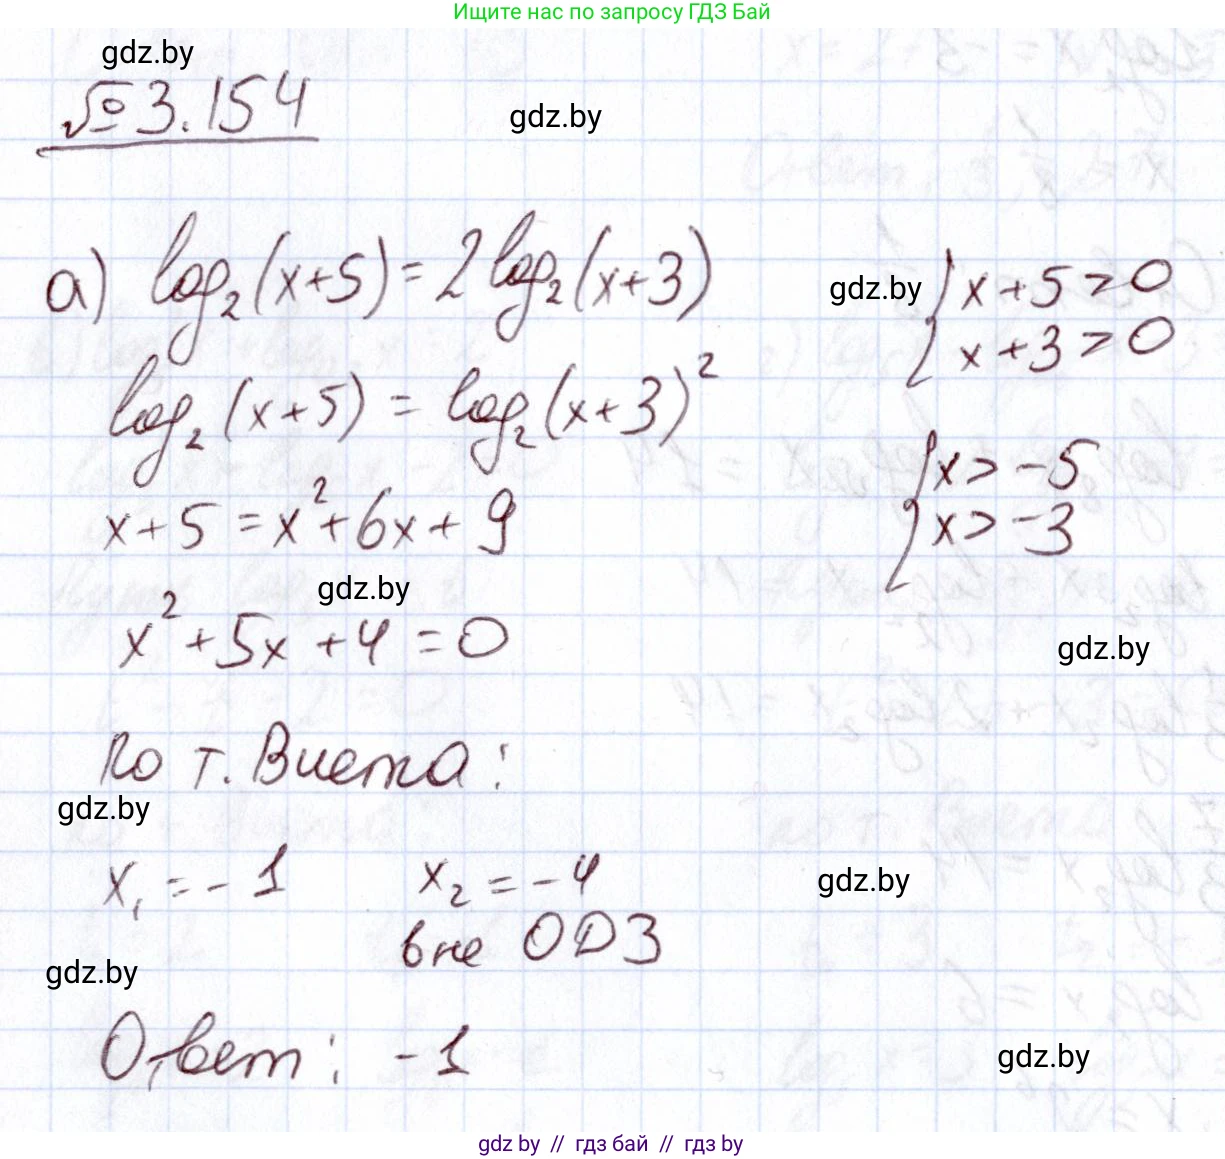 Ищите нас по запросу ГДЗ Бай
gdz.by
№ 3.154
gdz.by
а) log₂(x+5) = 2log₂(x+3)
gdz.by
{ x+5>0
x+3>0
log₂(x+5) = log₂(x+3)²
{ x>-5
x>-3
x+5 = x²+6x+9
gdz.by
x²+5x+4=0
gdz.by
По т. Виета:
gdz.by
x₁ = -1
x₂ = -4
gdz.by
вне ОДЗ
gdz.by
Ответ: -1
gdz.by
gdz by // гдз бай // gdz by